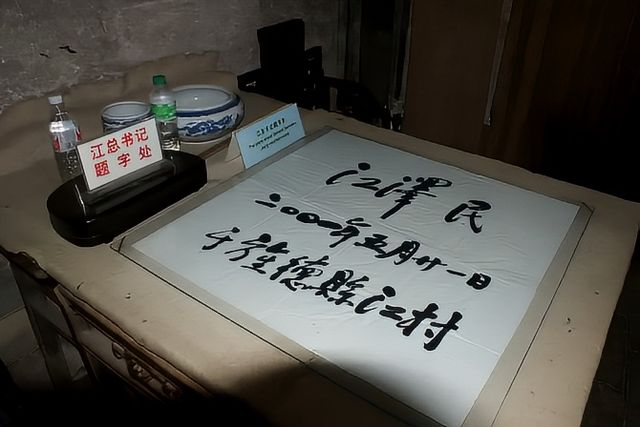 江总书记
题字处
江澤民
二〇〇〇年五月廿一日
于旌德縣江村